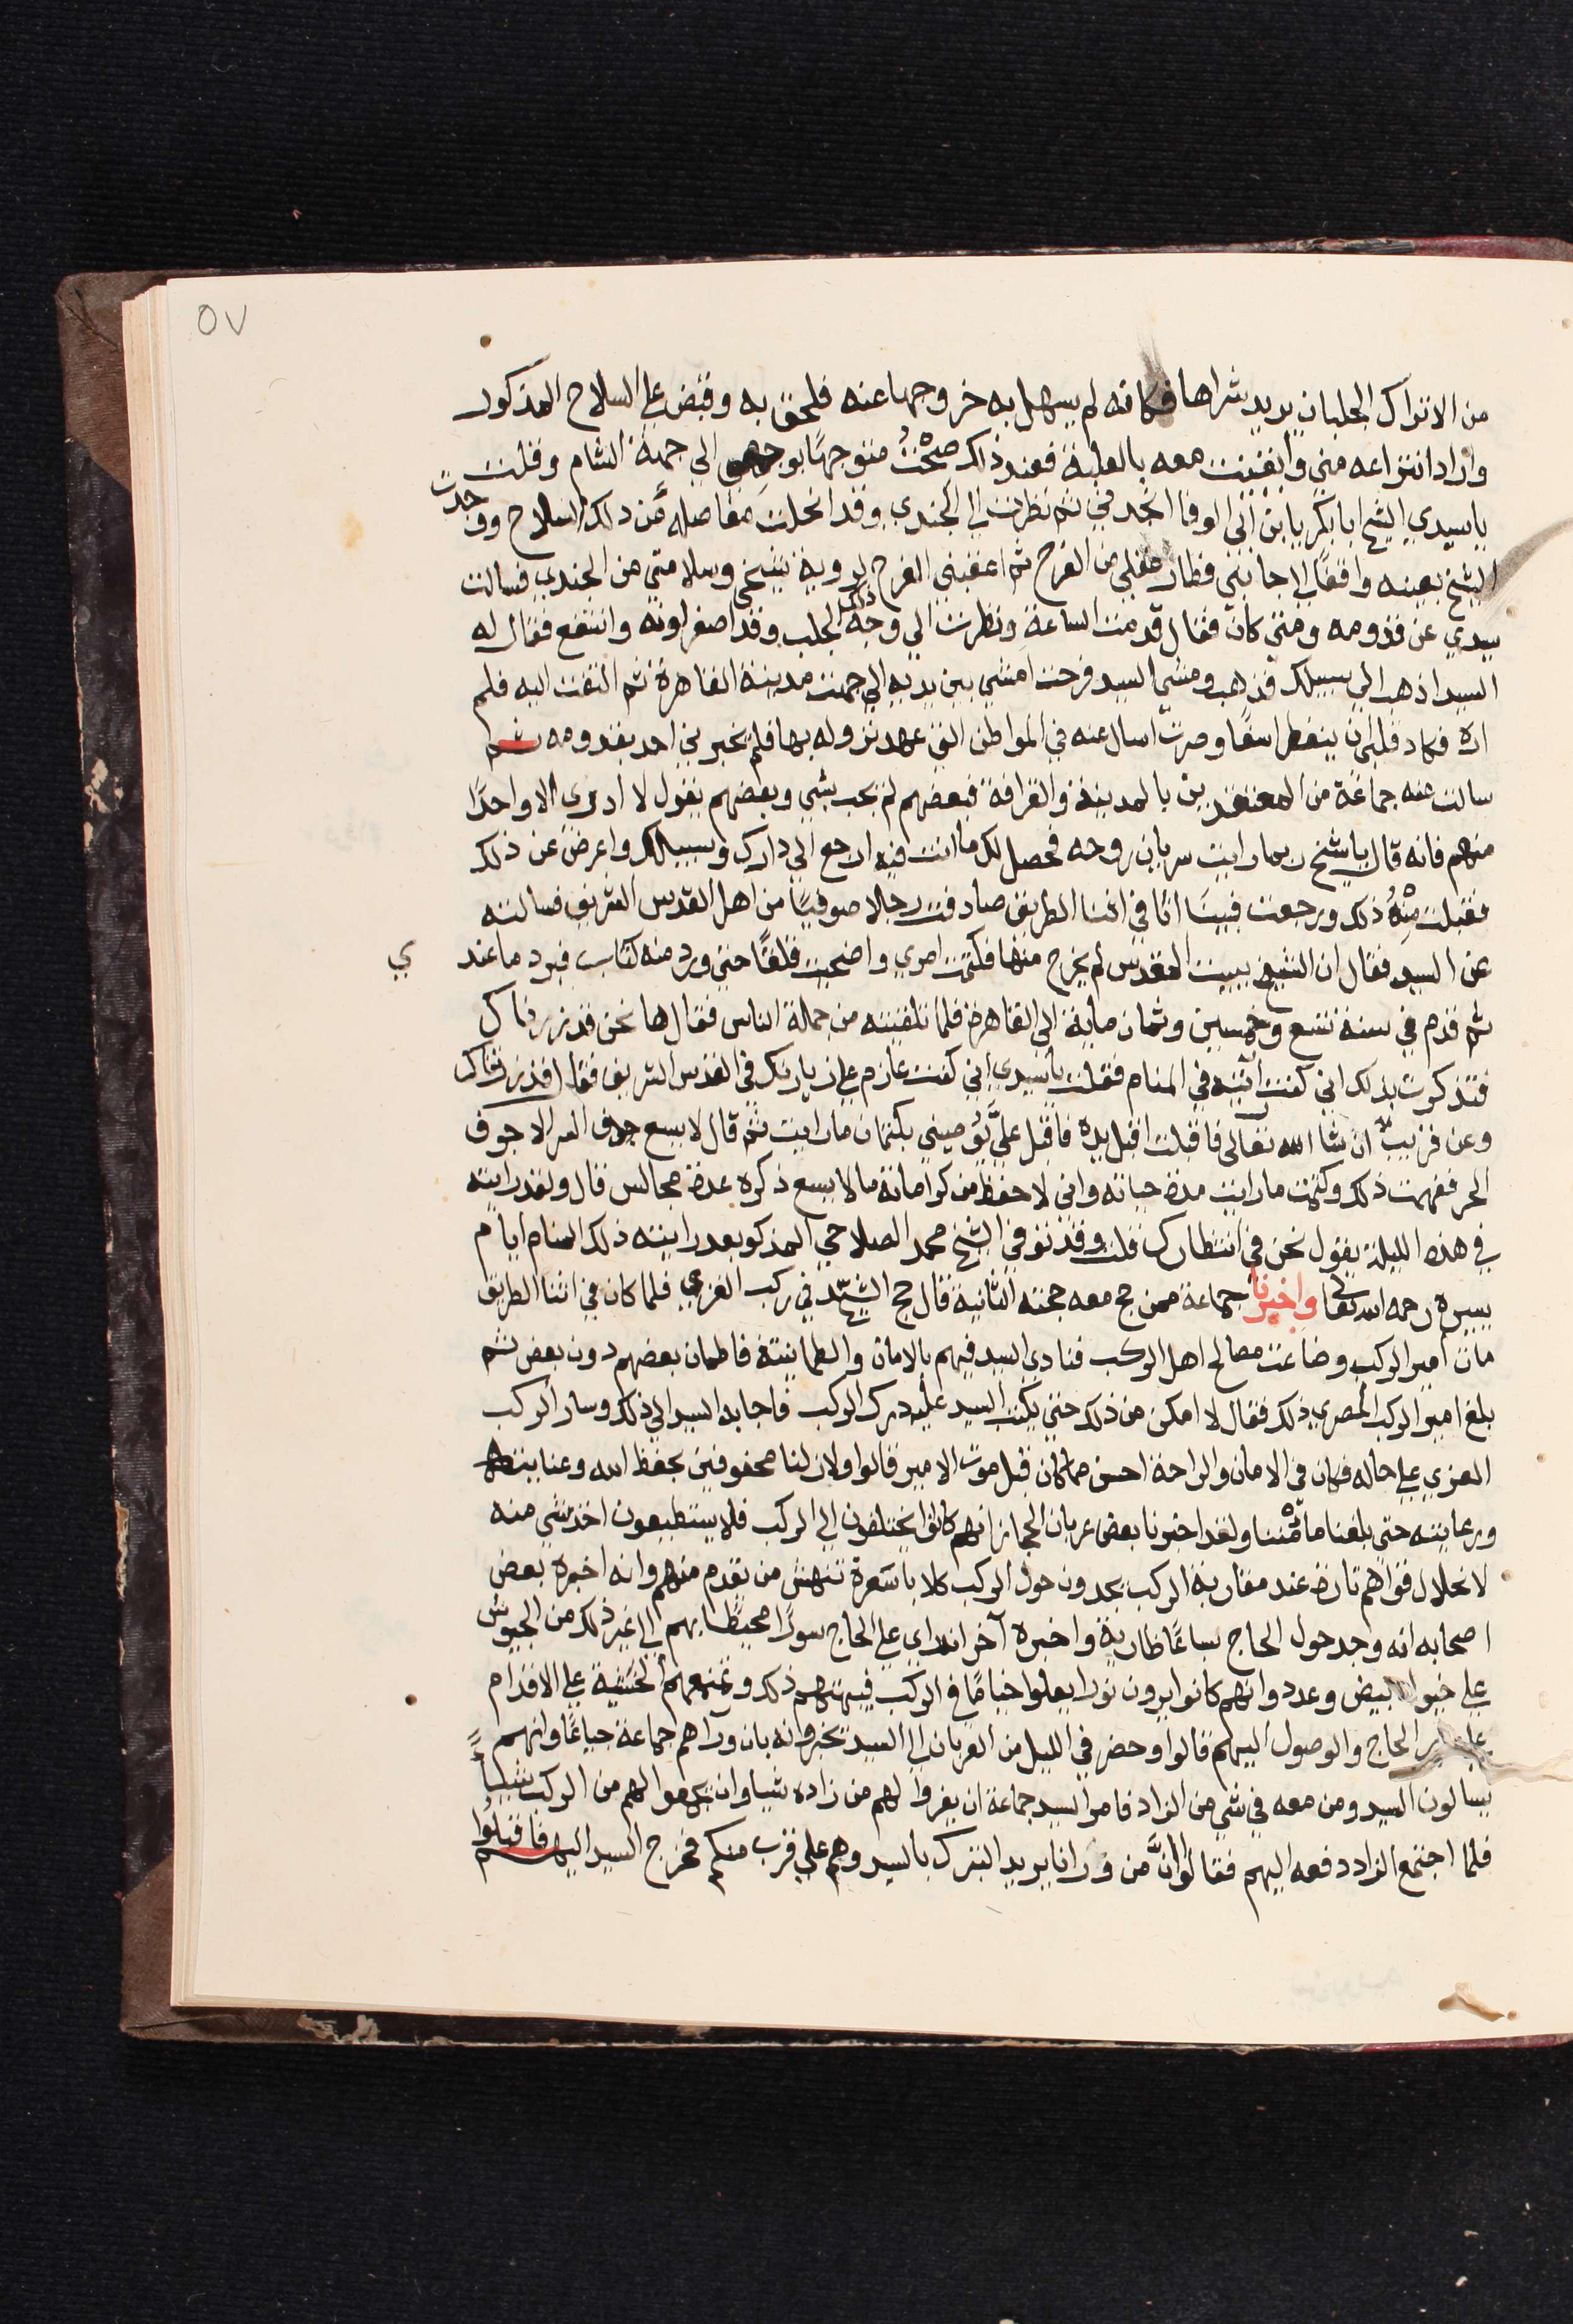 ٥٧
من الاتراك الجلبان يريد شراها فكانه لم يسهل به خروجها عنه فلحق به وقبض علي السلاح المذكور
واراد انتزاعه مني وايقنت معه بالغلبة فعند ذلك صحْتُ متوجهًا بوجهي الي جهة الشام وقلت
ياسيدي الشيخ ابا بكر يا بن ابي الوفا انجدني ثم نظرت الي الجندي وقد انحلت مفاصله عن ذلك السلاح ووجدت
الشيخ بعينه واقفًا الي جانبي فطار عقلي من الفرح ثم اعقبني الفرح لروية شيخي وسلامتي من الجندي فسالت
سيدي عن قدومه ومتي كان فقال قدمت الساعة ونظرت الي وجه ذلك الجلب وقد اصفر لونه وانتقع فقال له
السيد اذهب الي سبيلك فذهب ومشي السيد فرحت امشي بين يديه الي جهت مدينة القاهرة ثم التفت اليه فلم
اره فكاد قلبي ان ينفطر اسفًا وصرت اسال عنه في المواطن التي عهدت نزوله بها فلم يخبرني احد بقدومه ثم
سالت عنه جماعة من المعتقدين بالمدينة والقرافة فبعضهم لم يجب بشي وبعضهم يقول لا ادري الا واحدًا
منهم فانه قال يا شيخ ربما رايت سريان روحه فحصل لك ما انت فيه ارجع الي دارك وسبيلك واعرض عن ذلك
فقبلت مِنْهُ ذلك ورجعت فبينا انا في اثنا الطريق صادفت رجلا صوفيًا من اهل القدس الشريف فسالته
عن السيد فقال ان الشيخ ببيت المقدس لم يخرج منها فكتمت امري واضحيت قلقًا حتي ورد منه كتاب فبرد ما عند
ي
ثم قدم في سنة تسع وخمسين وثمان ماية الي القاهرة فلما تلقيته من جملة الناس فقال ها نحن قد زرناك
فتذكرت بذلك اني كنت رأيته في المنام فقلت ياسيدي اني كنت عازم علي زيارتك في القدس الشريف فقال قد زرتناك
وعن قريبٍ ان شا الله تعالى فاقبلت اقبل يده فاقبل عليَّ يُوصيني بكتمان ما رايت ثم قال لا يسع جوف السر الا جوف
الحر ففهمت ذلك وكتمت ما رايت مدة حياته واني لاحفظ من كراماته ما لا يسع ذكره عدة مجالس قال ولقد رايته
في هذه الليلة يقول نحن في انتظارك قلت وقد توفي الشيخ محمد الصلاحي المذكور بعد رايته ذلك المنام ايام
يسيرة رحمه الله تعالى واخبرنا جماعة ممن حج معه حجته الثانية قال حج الشيخ في ركب الغزي فلما كان في اثنا الطريق
مات امير الركب وضاعت مصالح اهل الركب فنادي السيد فيهم بالامان والطمانينة فاطمان بعضهم دون بعض ثم
بلغ امير الركب المصري ذلك فقال لا امكن من ذلك حتي يكتب السيد عليه درك الركب فاجابه السيد الي ذلك وسار الركب
الغزي علي حاله فكان في الامان والراحة احسن مما كان قبل موت الامير قالوا ولازلنا محفوفين بحفظ الله وعنايته
ورعايته حتى بلغنا مامَّننا ولقد اخبرنا بعض عربان الحجاز انهم كانوا يختلفون الي الركب فلا يستطيعون اخذ شي منه
لانحلال قواهم تارة عند مقاربة الركب يجدون حول الركب كلابا سَعرة تنهش من تقدم منهم وانه اخبره بعض
اصحابه انه وجد حول الحاج سباعًا ضارية واخبره آخر انه راي علي الحاج سورًا محيطًا بهم الي غير ذلك من الجيوش
علي خيول بيض وعدد وانهم كانوا يرون نورا يعلوا خيامًا في الركب فيبهتهم ذلك وتمنعهم الخشية علي الاقدام
علي الحاج والوصول اليهم قالوا وحضر في الليل من العربان الي السيد تخبر وانه بان وراهم جماعة جياعًا وانهم
يسالون السيد ومن معه في شي من الزاد فامر السيد جماعة ان يفرزوا لهم من زاده شيا وان يجمعوا لهم من الركب شيأً
فلما اجتمع الزاد دفعه اليهم فقالوا انَّ من ورانا يريد التبرك بالسيد وهم علي قرب منكم فخرج السيد اليهم فاقبلُوا